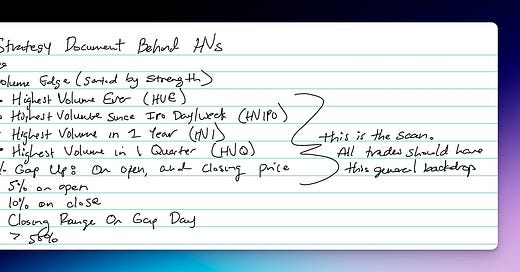 Strategy Document Behind HVs
Volume Edge (Sorted by Strength)
• Highest Volume Ever (HVE)
• Highest Volume Since IPO Day/week (HVIPO)
• Highest Volume in 1 Year (HV1)
• Highest Volume in 1 Quarter (HVQ)
this is the scan.
All trades should have
this general backdrop
% Gap Up: On open, and closing price
5% on open
10% on close
Closing Range On Gap Day
> 55%